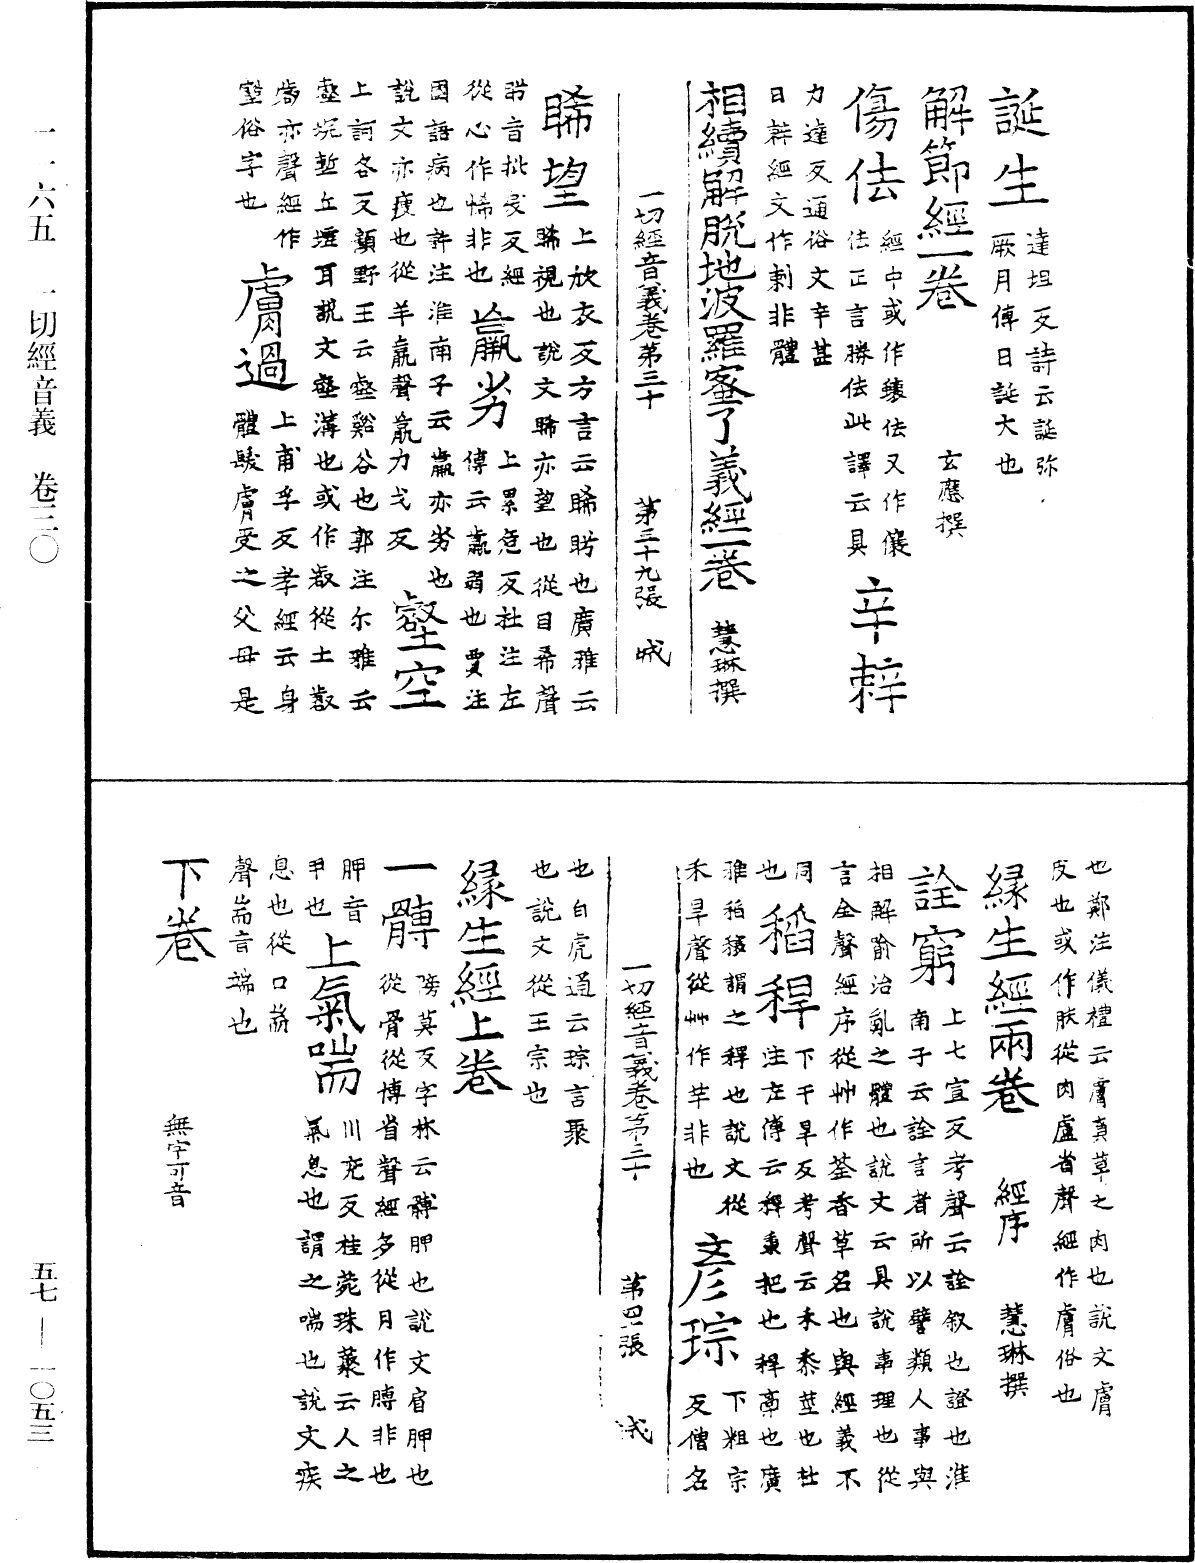 誕生 達坦反詩云誕弥
厥月傳曰誕大也
解節經一卷 玄應撰
傷佉 經中或作蠰佉又作儴
佉正言勝佉此譯云具 辛䅣
力達反通俗文辛甚
曰䅣經文作剌非體
相續解脫地波羅蜜了義經一卷 慧琳撰
一切經音義卷第三十 第三十九張 城
睎望 上放衣反方言云睎眄也廣雅云
睎視也說文睎亦望也從目希聲
眄音批反經
從心作悕非也 羸劣 上累危反杜注左
傳云羸弱也賈注
國語病也許注淮南子云羸亦劣也
說文亦瘦也從羊羸聲羸力戈反 壑空
上訶各反顧野王云壑谿谷也郭注尔雅云
壑坑塹丘墟耳說文壑溝也或作叡從土叡
亦聲經作
壑俗字也 膚過 上甫孚反孝經云身
體髮膚受之父母是
也鄭注儀禮云膚真草之肉也說文膚
皮也或作肤從肉盧省聲經作膚俗也
緣生經兩卷 經序 慧琳撰
詮窮 上七宣反考聲云詮叙也證也淮
南子云詮言者所以譬類人事與
相解喻治亂之體也說文云具說事理也從
言全聲經序從艸作荃香草名也與經義不
同 稻稈 下干旱反考聲云禾黍莖也杜
也 注左傳云稈稾把也稈稾也廣
雅稻穰謂之稈也說文從
禾旱聲從艸作芉非也 彥琮 下粗宗
反僧名
一切經音義卷第三十 第四張 城
也白虎通云琮言聚
也說文從王宗也
緣生經上卷
一髆 滂莫反字林云髆胛也說文肩胛也
從骨從博省聲經多從月作膊非也
胛音
甲也 上氣喘 川兖反桂菀珠藂云人之
氣息也謂之喘也說文疾
息也從口耑
聲耑音端也
下卷 無字可音
一一六五 一切經音義 卷三〇
五七—一〇五三